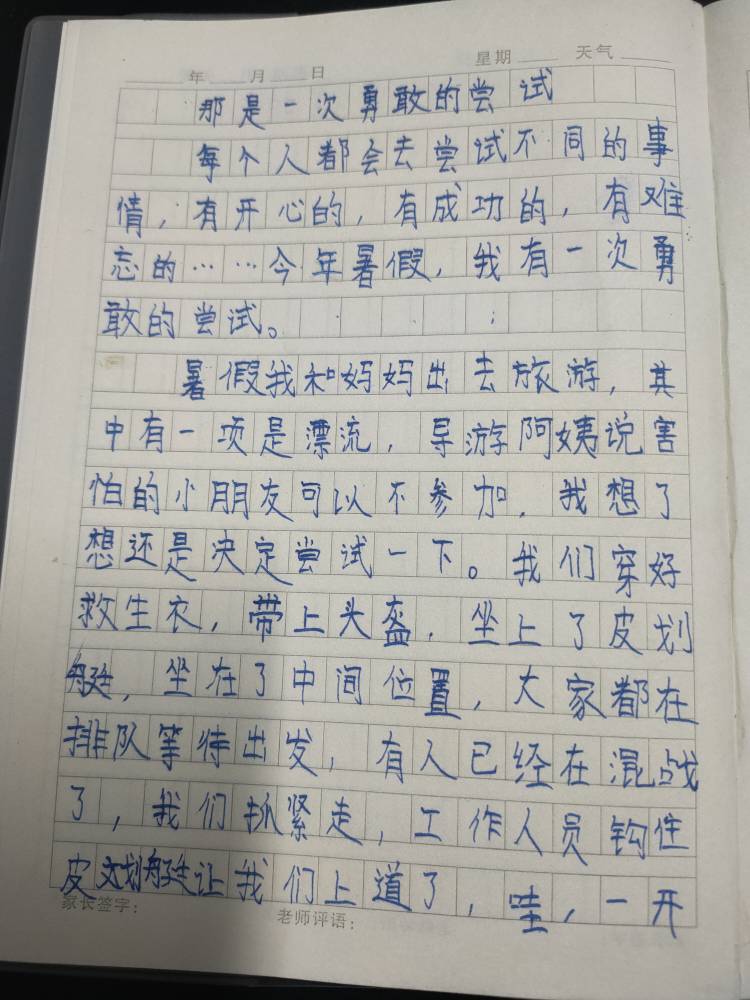 年 月 日 星期 天气
那是一次勇敢的尝试
每个人都会去尝试不同的事
情，有开心的，有成功的，有难
忘的……今年暑假，我有一次勇
敢的尝试。
暑假我和妈妈出去旅游，其
中有一项是漂流，导游阿姨说害
怕的小朋友可以不参加，我想了
想还是决定尝试一下。我们穿好
救生衣，带上头盔，坐上了皮划
艇，坐在了中间位置，大家都在
排队等待出发，有人已经在混战
了，我们抓紧走，工作人员钩住
皮划艇让我们上道了，哇，一开
家长签字： 老师评语：